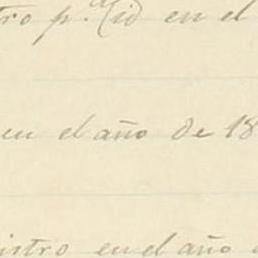 tro p.r Cid en el
en el año de 18
istro en el año